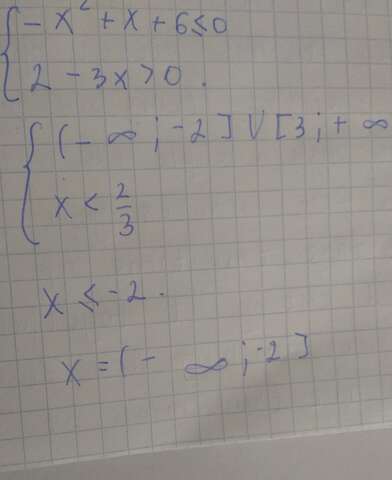 { - x² + x + 6 ≤ 0
2 - 3x > 0.
{ (- ∞ ; -2] V [3 ; + ∞
x < 2/3
x ≤ -2.
x = (- ∞ ; -2]